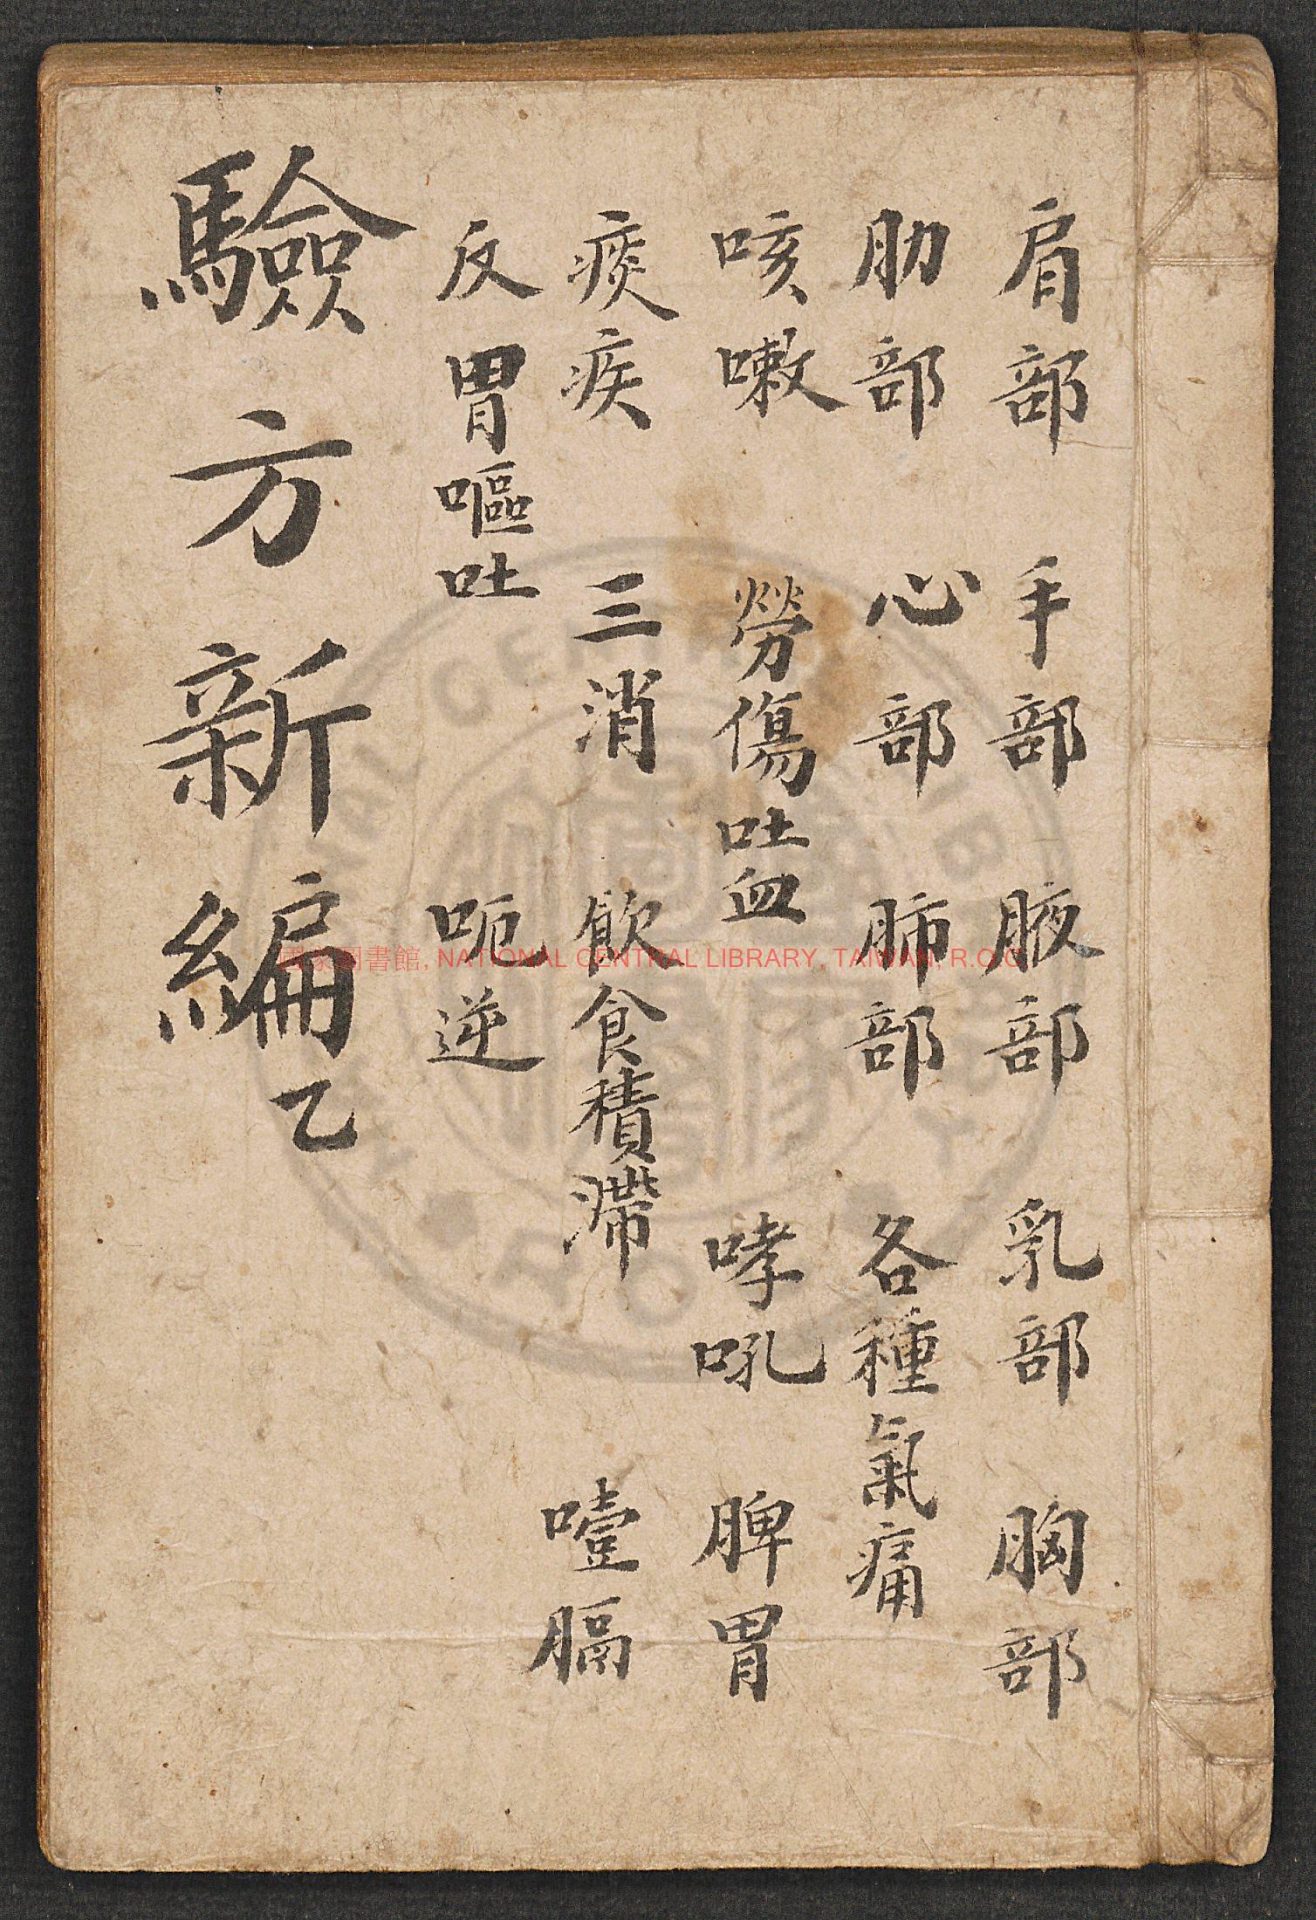 肩部 手部 腋部 乳部 胸部
肋部 心部 肺部 各種氣痛
咳嗽 勞傷吐血 哮吼 脾胃
痰疾 三消 飲食積滯 噎膈
反胃嘔吐 呃逆
驗方新編乙
國家圖書館, NATIONAL CENTRAL LIBRARY, TAIWAN, R.O.C